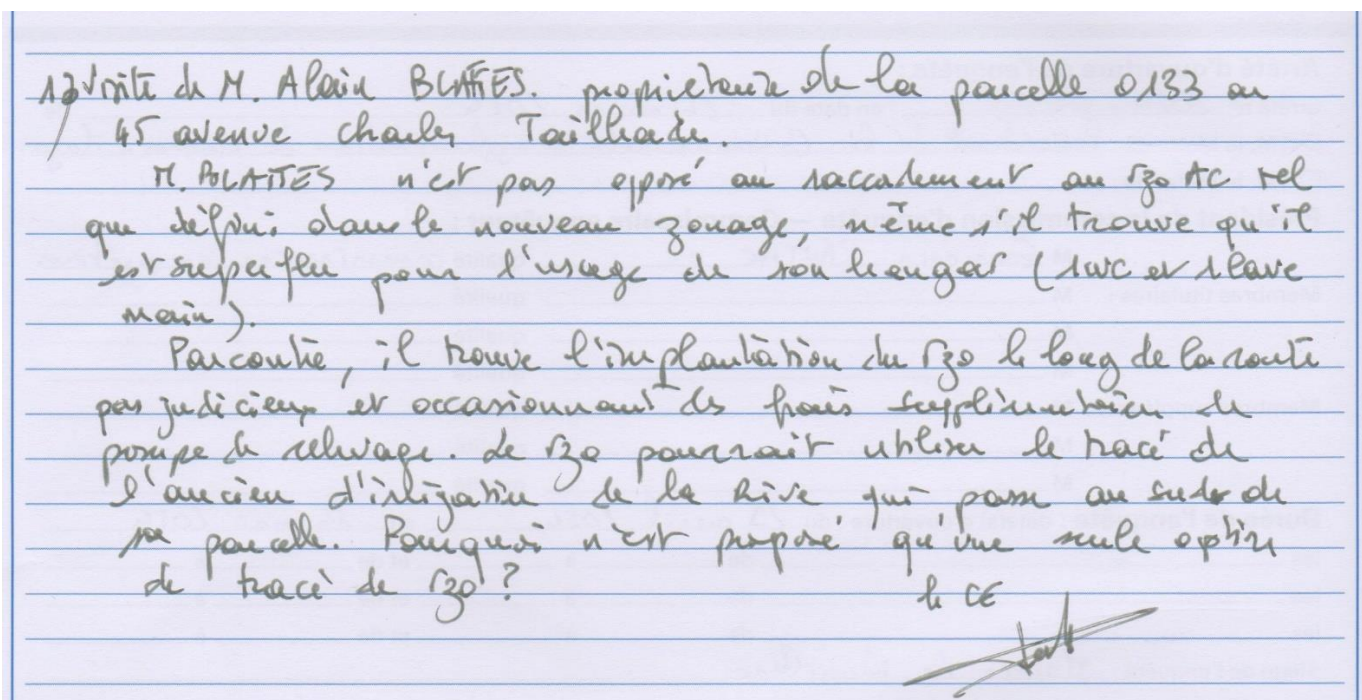 1°/ visite de M. Alain BLATTES. propriétaire de la parcelle 0133 au
45 avenue Charles Tailhade.
M. BLATTES n'est pas opposé au raccordement au rzo AC tel
que défini dans le nouveau zonage, même s'il trouve qu'il
est superflu pour l'usage de son hangar (1 wc et 1 lave
main).
Parcontre, il trouve l'implantation du rzo le long de la route
pas judicieux et occasionnant des frais supplémentaires de
pompe de relevage. Le rzo pourrait utiliser le tracé de
l'ancien d'irrigation de la Rive qui passe au sud de
sa parcelle. Pourquoi n'est proposé qu'une seule option
de tracé de rzo ?
le CE